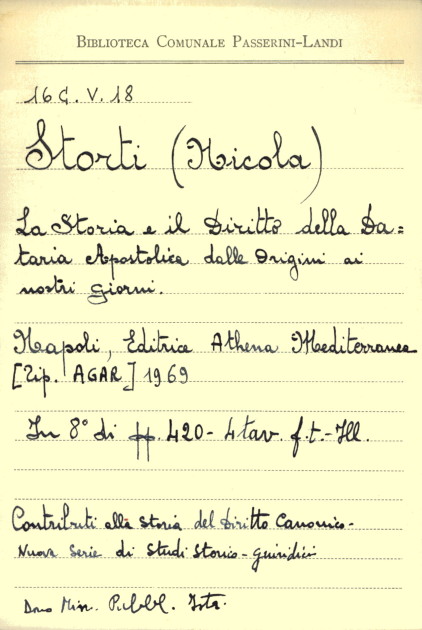 BIBLIOTECA COMUNALE PASSERINI-LANDI
16 G. V. 18
Storti (Nicola)
La Storia e il Diritto della Da=
taria Apostolica dalle Origini ai
nostri Giorni.
Napoli, Editrice Athena Mediterranea
[Tip. AGAR] 1969
In 8° di pp. 420 - 4 tav. f. t. - Ill.
Contributi alla Storia del Diritto Canonico -
Nuova Serie di Studi Storico - giuridici
Dono Min. Pubbl. Istr.